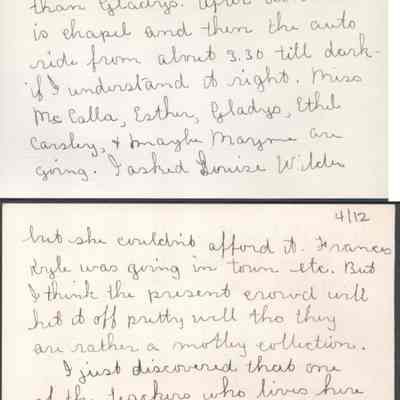 than Gladys. After
is chapel and then the auto
ride from about 3.30 till dark-
if I understand it right. Miss
McCalla, Esther, Gladys, Ethel
Carsley, & maybe Mayme are
going. I asked Louise Wilden
4/12
but she couldn't afford it. Frances
Kyle was going in town etc. But
I think the present crowd will
hit it off pretty well tho they
are rather a motley collection.
I just discovered that one
of the teachers who lives here